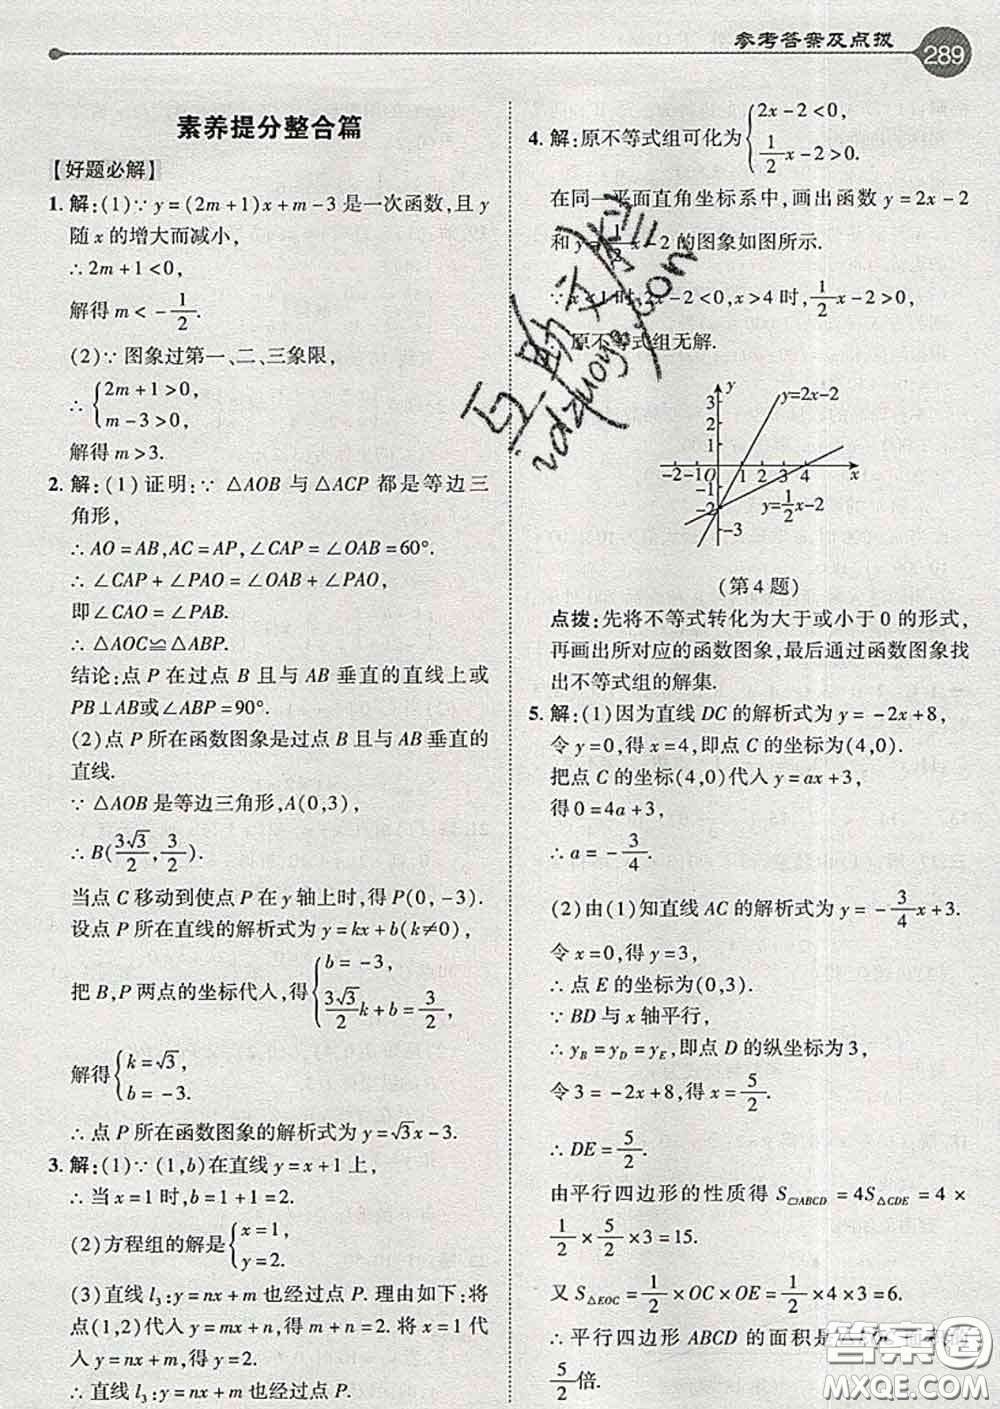 参考答案及点拨
289
素养提分整合篇
【好题必解】
1. 解:(1)∵ y=(2m+1)x+m-3 是一次函数,且 y
随 x 的增大而减小,
∴ 2m+1<0,
解得 m<-1/2.
(2)∵ 图象过第一、二、三象限,
∴ {2m+1>0,
m-3>0,
解得 m>3.
2. 解:(1) 证明:∵ △AOB 与 △ACP 都是等边三
角形,
∴ AO=AB,AC=AP,∠CAP=∠OAB=60°.
∴ ∠CAP+∠PAO=∠OAB+∠PAO,
即∠CAO=∠PAB.
∴ △AOC≌△ABP.
结论:点 P 在过点 B 且与 AB 垂直的直线上或
PB⊥AB或∠ABP=90°.
(2)点 P 所在函数图象是过点 B 且与 AB 垂直的
直线.
∵ △AOB 是等边三角形,A(0,3),
∴ B(3√3/2,3/2).
当点 C 移动到使点 P 在 y 轴上时,得 P(0,-3).
设点 P 所在直线的解析式为 y=kx+b(k≠0),
把 B,P 两点的坐标代入,得 {b=-3,
3√3/2 k+b=3/2,
解得 {k=√3,
b=-3.
∴ 点 P 所在函数图象的解析式为 y=√3x-3.
3. 解:(1)∵ (1,b)在直线 y=x+1 上,
∴ 当 x=1 时,b=1+1=2.
(2)方程组的解是 {x=1,
y=2.
(3)直线 l₃:y=nx+m 也经过点 P. 理由如下:将
点(1,2)代入 y=mx+n,得 m+n=2. 将 x=1
代入 y=nx+m,得 y=n+m=2.
∴ 直线 l₃:y=nx+m 也经过点 P.
4. 解:原不等式组可化为 {2x-2<0,
1/2 x-2>0.
在同一平面直角坐标系中,画出函数 y=2x-2
和 y=1/2 x-2 的图象如图所示.
∵ x<1 时,2x-2<0,x>4 时,1/2 x-2>0,
原不等式组无解.
y
y=2x-2
3
2
1
-2 -1 O 1 2 3 4 x
-1
-2
-3
y=1/2 x-2
(第 4 题)
点拨:先将不等式转化为大于或小于 0 的形式,
再画出所对应的函数图象,最后通过函数图象找
出不等式组的解集.
5. 解:(1)因为直线 DC 的解析式为 y=-2x+8,
令 y=0,得 x=4,即点 C 的坐标为(4,0).
把点 C 的坐标(4,0)代入 y=ax+3,
得 0=4a+3,
∴ a=-3/4.
(2)由(1)知直线 AC 的解析式为 y=-3/4 x+3.
令 x=0,得 y=3,
∴ 点 E 的坐标为(0,3).
∵ BD 与 x 轴平行,
∴ y_B=y_D=y_E,即点 D 的纵坐标为 3,
令 3=-2x+8,得 x=5/2.
∴ DE=5/2.
由平行四边形的性质得 S▱ABCD=4S△CDE=4×
1/2×5/2×3=15.
又 S△EOC=1/2×OC×OE=1/2×4×3=6.
∴ 平行四边形 ABCD 的面积是
5/2 倍.
互助文库
idzuoye.com
答案圈
MXQE.COM